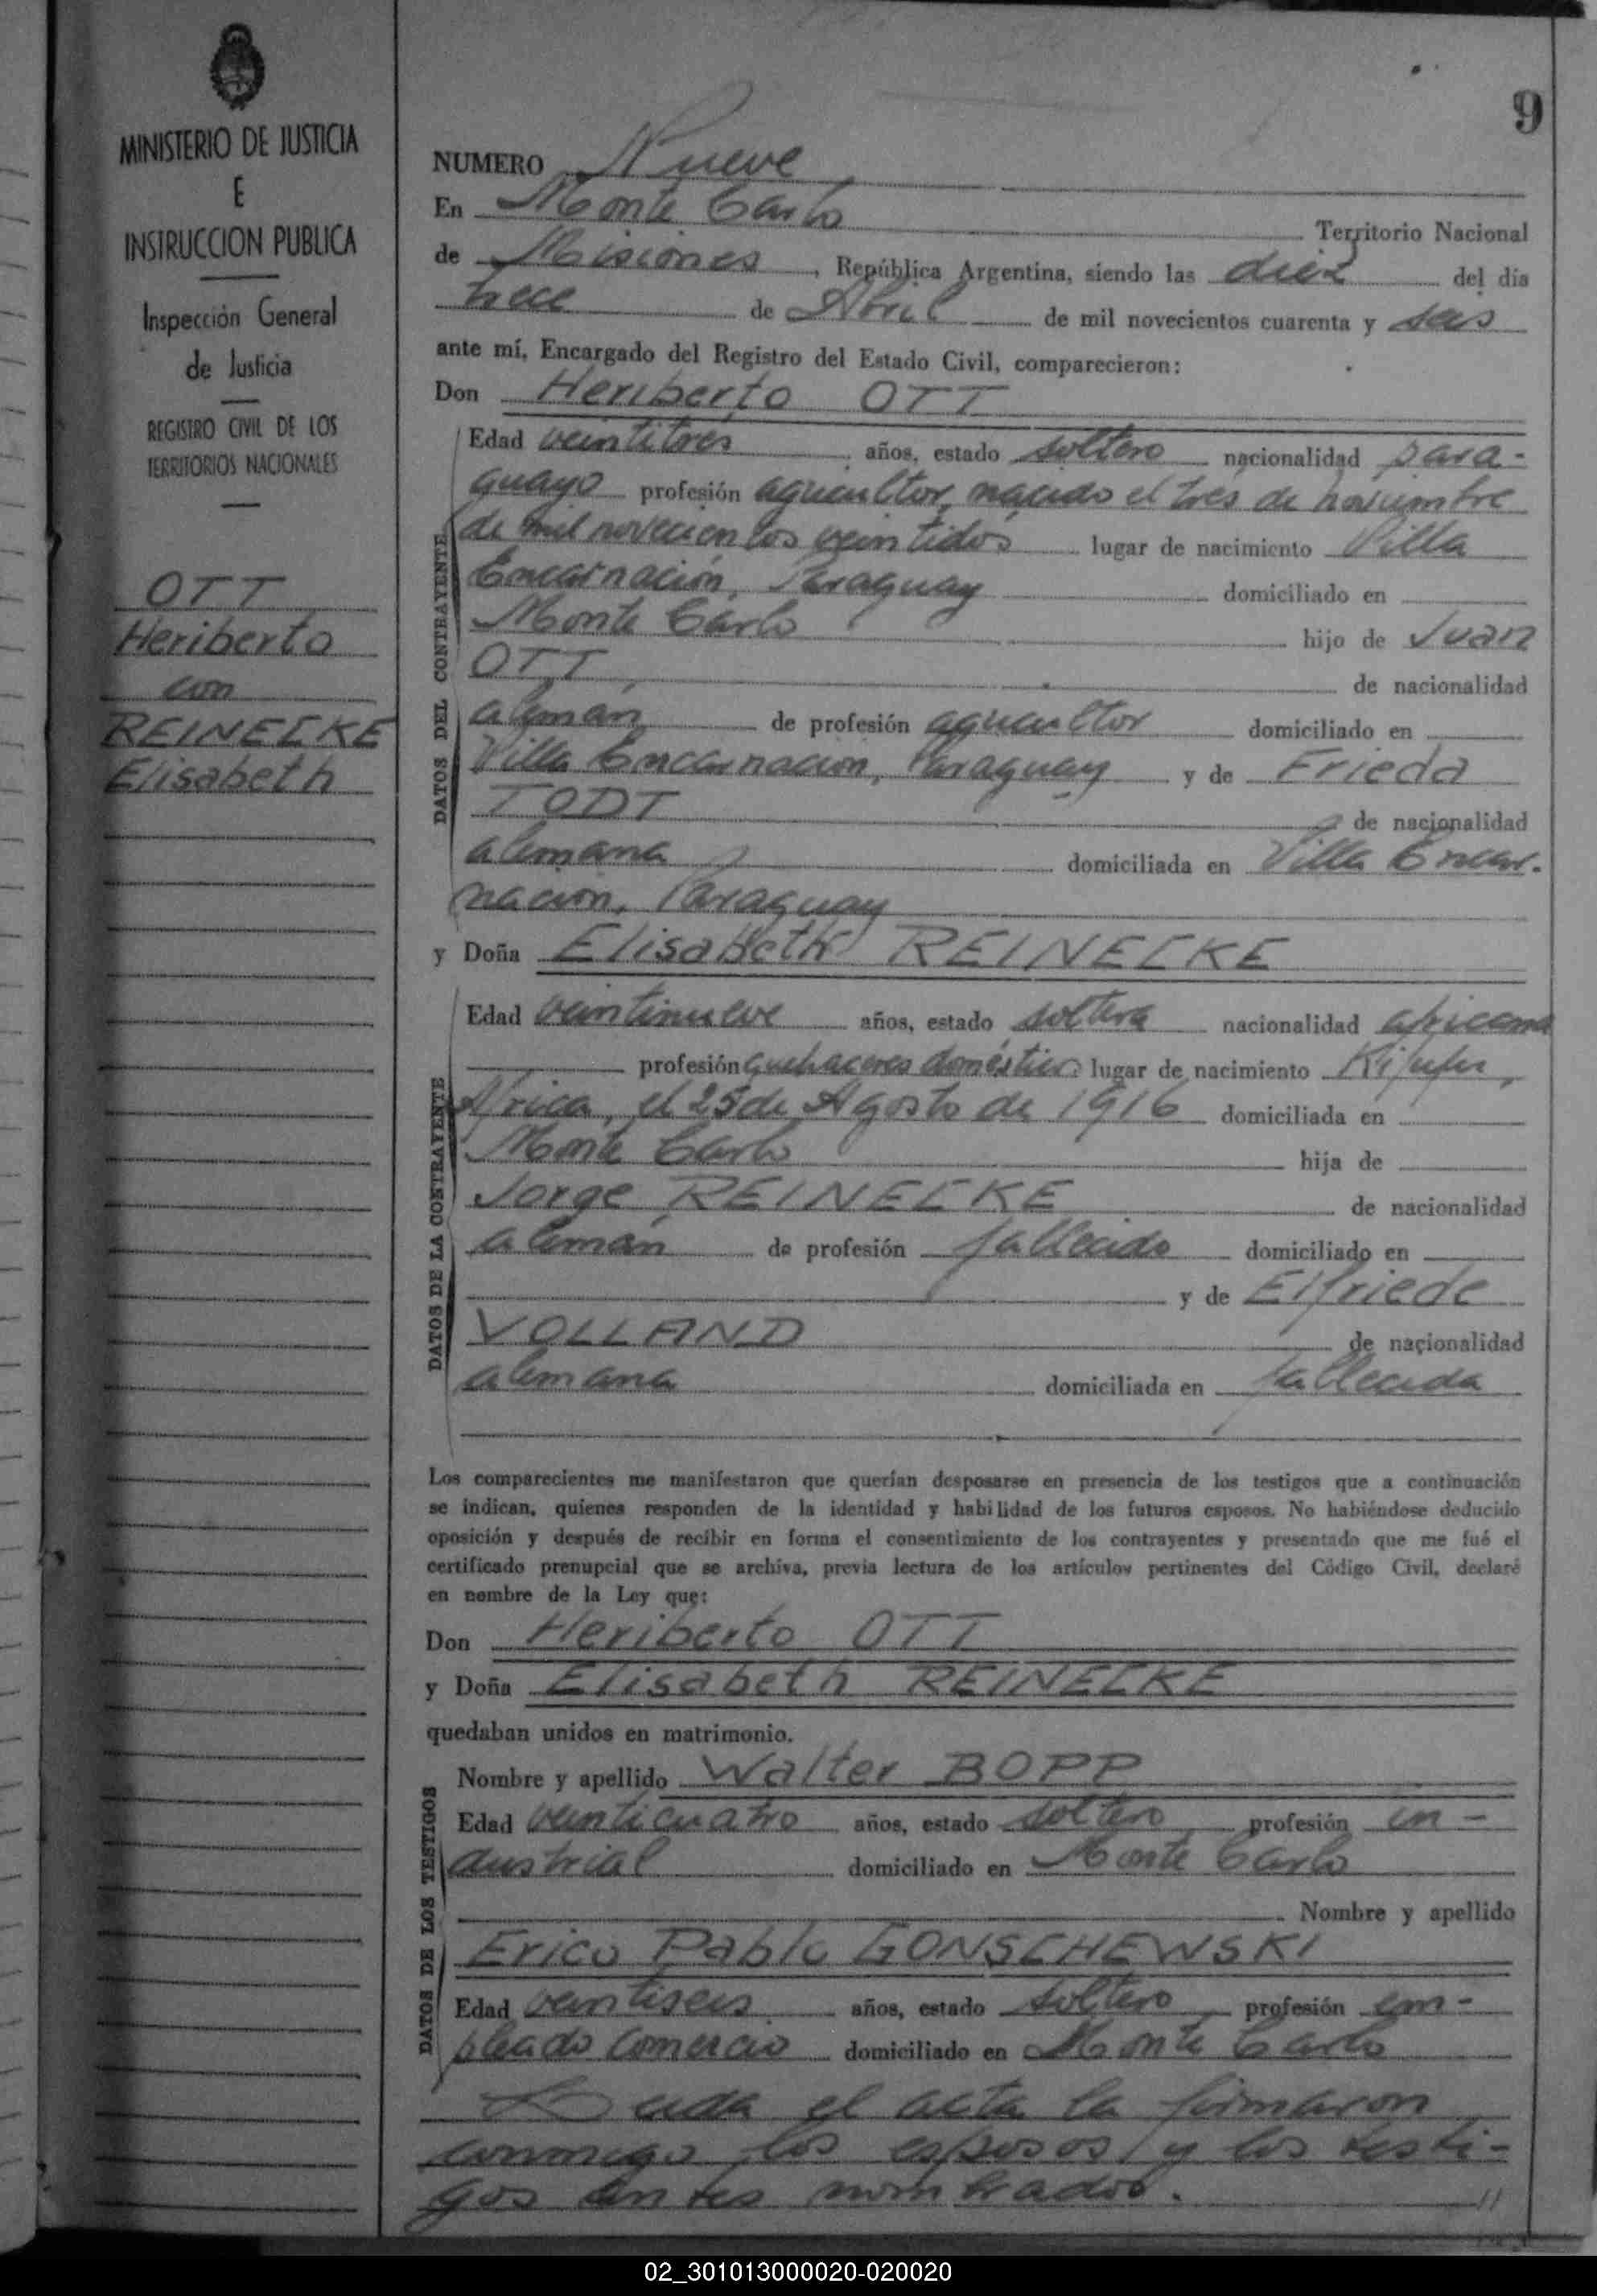 MINISTERIO DE JUSTICIA
E
INSTRUCCION PUBLICA
Inspección General
de Justicia
REGISTRO CIVIL DE LOS
TERRITORIOS NACIONALES
OTT
Heriberto
con
REINECKE
Elisabeth
9
NUMERO Nueve
En Monte Carlo Territorio Nacional
de Misiones, República Argentina, siendo las diez del día
trece de Abril de mil novecientos cuarenta y seis
ante mí, Encargado del Registro del Estado Civil, comparecieron:
Don Heriberto OTT
DATOS DEL CONTRAYENTE
Edad veintitres años, estado soltero nacionalidad para-
guayo profesión agricultor, nacido el tres de noviembre
de mil novecientos veintidós lugar de nacimiento Villa
Encarnación, Paraguay domiciliado en
Monte Carlo hijo de Juan
OTT, de nacionalidad
alemán de profesión agricultor domiciliado en
Villa Encarnación, Paraguay y de Frieda
TODT de nacionalidad
alemana domiciliada en Villa Encar-
nación, Paraguay
y Doña Elisabeth REINECKE
DATOS DE LA CONTRAYENTE
Edad veintinueve años, estado soltera nacionalidad africana
profesión quehaceres domésticos lugar de nacimiento
Africa, el 25 de Agosto de 1916 domiciliada en
Monte Carlo hija de
Jorge REINECKE de nacionalidad
alemán de profesión fallecido domiciliado en
y de Elfriede
VOLLAND de nacionalidad
alemana domiciliada en fallecida
Los comparecientes me manifestaron que querían desposarse en presencia de los testigos que a continuación
se indican, quienes responden de la identidad y habilidad de los futuros esposos. No habiéndose deducido
oposición y después de recibir en forma el consentimiento de los contrayentes y presentado que me fué el
certificado prenupcial que se archiva, previa lectura de los artículos pertinentes del Código Civil, declaré
en nombre de la Ley que:
Don Heriberto OTT
y Doña Elisabeth REINECKE
quedaban unidos en matrimonio.
DATOS DE LOS TESTIGOS
Nombre y apellido Walter BOPP
Edad veinticuatro años, estado soltero profesión in-
dustrial domiciliado en Monte Carlo
Nombre y apellido
Erico Pablo GONSCHEWSKI
Edad veintiseis años, estado soltero profesión em-
pleado comercio domiciliado en Monte Carlo
Leida el acta la firmaron
conmigo los esposos y los testi-
gos antes nombrados. //
02_301013000020-020020